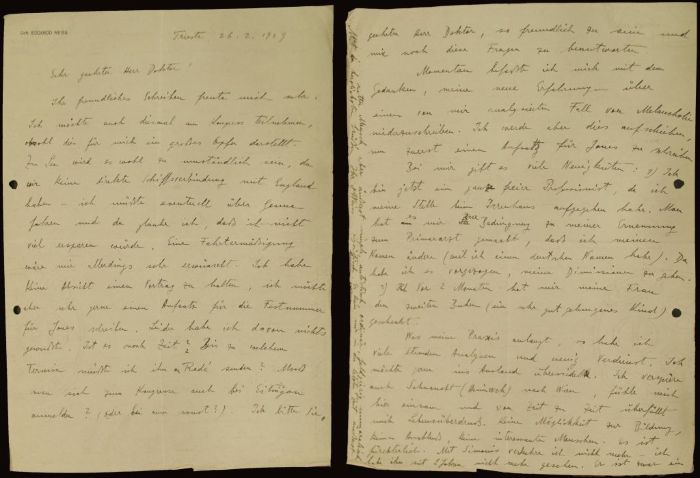 DR. EDOARDO WEISS
Trieste 26. 2. 1929
Sehr geehrter Herr Doktor!
Ihr freundliches Schreiben freute mich sehr.
Ich möchte auch diesmal am Kongress teilnehmen,
obwohl dies für mich ein grosses Opfer darstellt.
Zur See wird es wohl zu umständlich sein, da
wir keine direkte Schiffsverbindung mit England
haben – ich müsste eventuell über Genua
fahren und da glaube ich, dass ich nicht
viel ersparen würde. Eine Fahrtermässigung
wäre mir allerdings sehr erwünscht. Ich habe
keine Absicht einen Vortrag zu halten, ich möchte
aber sehr gerne einen Aufsatz für die Festnummer
für Jones schreiben. Leider habe ich davon nichts
gewusst. Ist es noch Zeit? Bis zu welchem
Termine müsste ich ihn Radó senden? Muss
man sich zum Kongresse auch bei Eitingon
anmelden? (oder bei wem sonst?). Ich bitte Sie,
geehrter Herr Doktor, so freundlich zu sein und
mir noch diese Fragen zu beantworten
Momentan befasste ich mich mit dem
Gedanken, meine neue Erfahrung über
einen von mir analysierten Fall von Melancholie
niederzuschreiben. Ich werde aber dies aufschieben,
um zuerst einen Aufsatz für Jones zu schreiben
Bei mir gibt es viele Neuigkeiten: 1) Ich
bin jetzt ein ganz freier Professionist, da ich
meine Stelle im Irrenhaus aufgegeben habe. Man
hat es mir zur Bedingung zu meiner Ernennung
zum Primararzt gemacht, dass ich meinen
Namen ändere (weil ich einen deutschen Namen habe). Da
habe ich es vorgezogen, meine Dimissionen zu geben.
2) Vor 2 Monaten hat mir meine Frau
den zweiten Buben (ein sehr gut gelungenes Kind)
geschenkt.
Was meine Praxis anlangt, so habe ich
viele Stunden Analysen und wenig Verdienst. Ich
möchte gern ins Ausland übersiedeln. Ich verspüre
auch Sehnsucht (Heimweh) nach Wien, fühle mich
hier einsam und von Zeit zu Zeit überfällt
mich Lebensüberdruss. Keine Möglichkeit zur Bildung,
keine interessanten Menschen. Es ist
fürchterlich. Mit Simonis verkehre ich nicht mehr – ich
habe ihn seit 2 Jahren nicht mehr gesehen. Er ist zwar ein